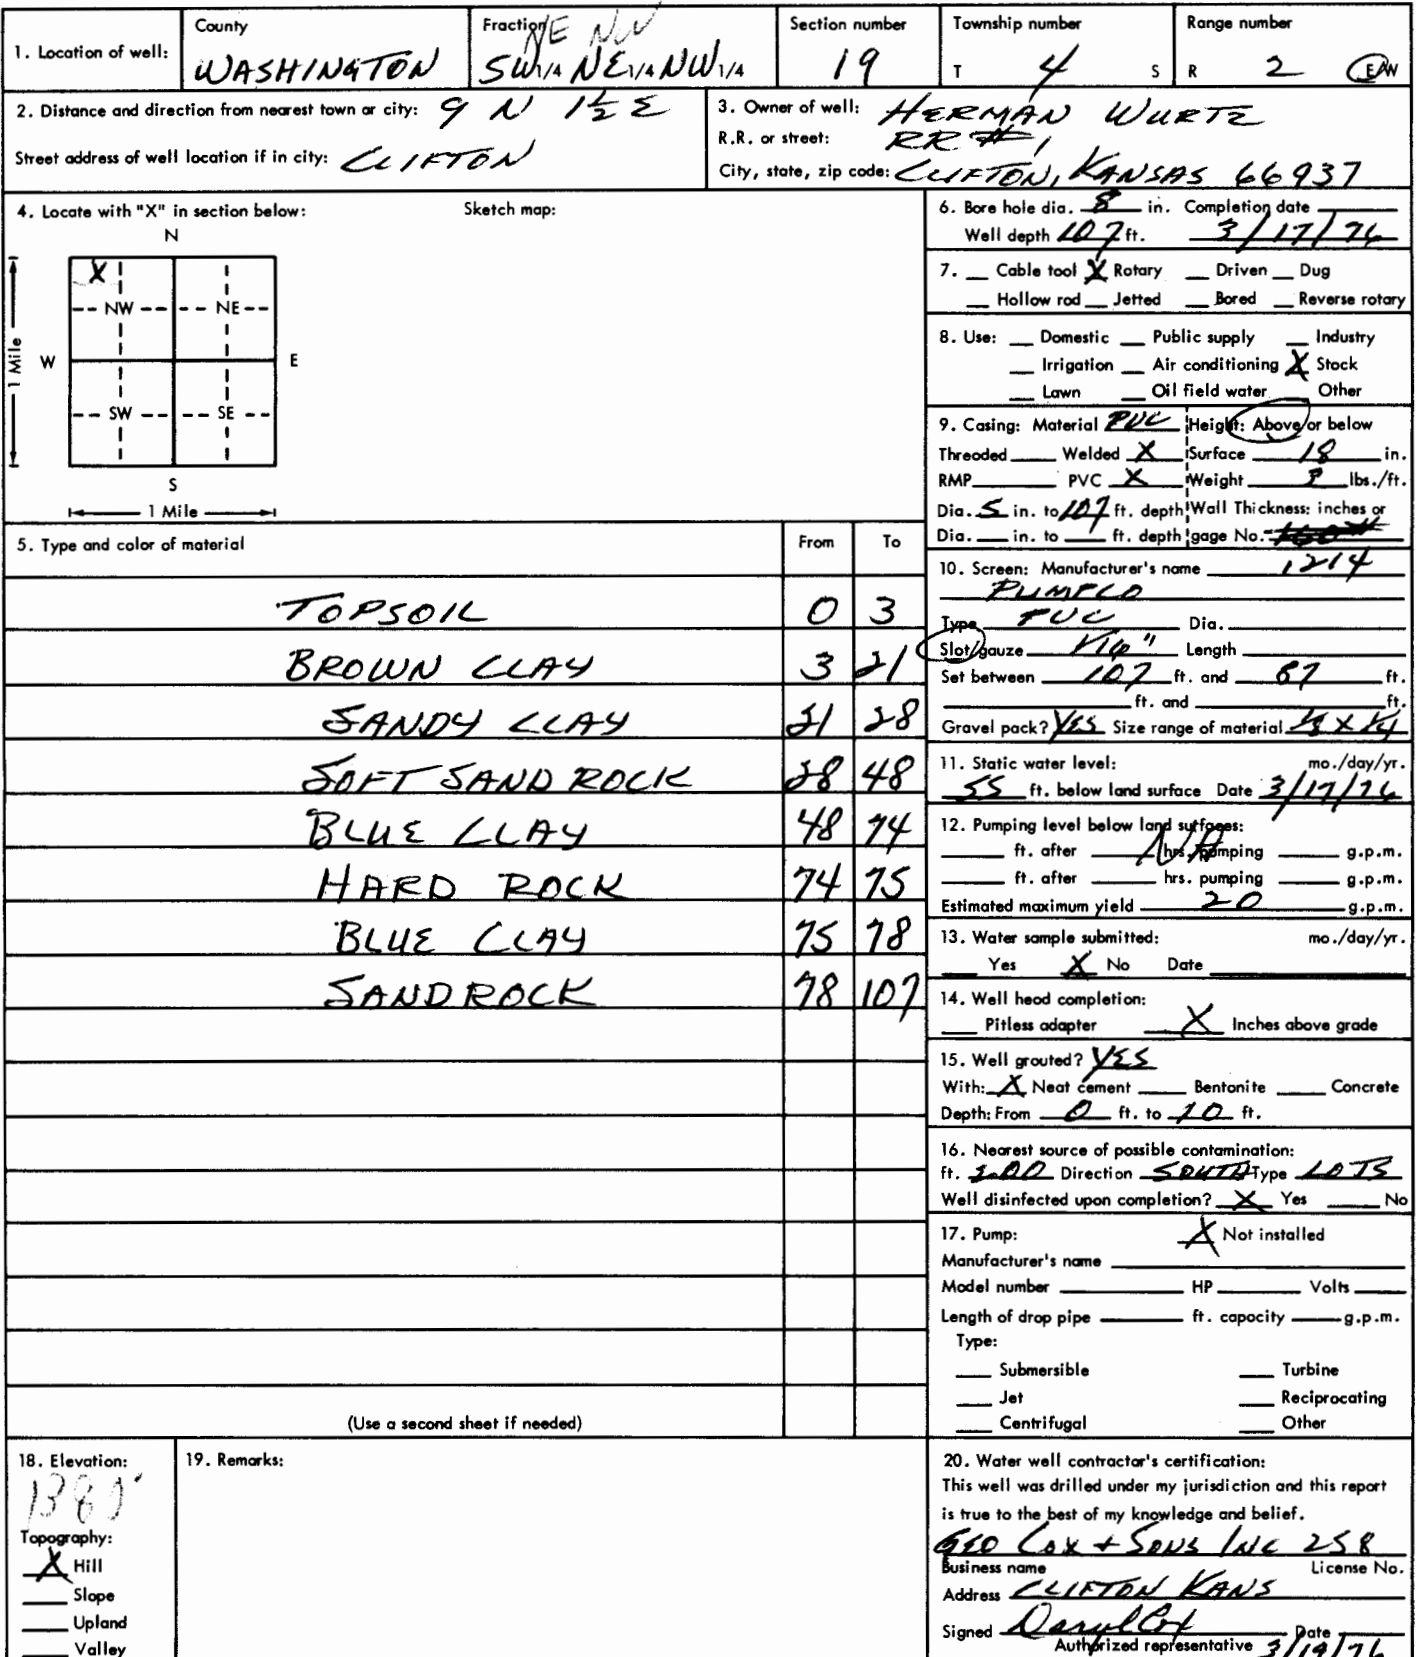 1. Location of well: County WASHINGTON Fraction NE NW SW 1/4 NE 1/4 NW 1/4 Section number 19 Township number T 4 S Range number R 2 E/W
2. Distance and direction from nearest town or city: 9 N 1½ E
Street address of well location if in city: CLIFTON
3. Owner of well: HERMAN WURTZ
R.R. or street: RR #1
City, state, zip code: CLIFTON, KANSAS 66937
4. Locate with "X" in section below: Sketch map:
N
X
NW NE
W E
1 Mile
SW SE
S
1 Mile
5. Type and color of material From To
TOPSOIL 0 3
BROWN CLAY 3 21
SANDY CLAY 21 28
SOFT SAND ROCK 28 48
BLUE CLAY 48 74
HARD ROCK 74 75
BLUE CLAY 75 78
SANDROCK 78 107
(Use a second sheet if needed)
6. Bore hole dia. 8 in. Completion date
Well depth 107 ft. 3/17/76
7. Cable tool X Rotary Driven Dug
Hollow rod Jetted Bored Reverse rotary
8. Use: Domestic Public supply Industry
Irrigation Air conditioning X Stock
Lawn Oil field water Other
9. Casing: Material PVC Height: Above or below
Threaded Welded X Surface 18 in.
RMP PVC X Weight lbs./ft.
Dia. 5 in. to 107 ft. depth Wall Thickness: inches or
Dia. in. to ft. depth gage No.
10. Screen: Manufacturer's name 1214
PUMPCO
Type PVC Dia.
Slot/gauze 1/16" Length
Set between 107 ft. and 87 ft.
ft. and ft.
Gravel pack? YES Size range of material 1/8 X 1/4
11. Static water level: mo./day/yr.
55 ft. below land surface Date 3/17/76
12. Pumping level below land surfaces:
ft. after NA hrs. pumping g.p.m.
ft. after hrs. pumping g.p.m.
Estimated maximum yield 20 g.p.m.
13. Water sample submitted: mo./day/yr.
Yes X No Date
14. Well head completion:
Pitless adapter X Inches above grade
15. Well grouted? YES
With: X Neat cement Bentonite Concrete
Depth: From 0 ft. to 10 ft.
16. Nearest source of possible contamination:
ft. 200 Direction SOUTH Type LOTS
Well disinfected upon completion? X Yes No
17. Pump: X Not installed
Manufacturer's name
Model number HP Volts
Length of drop pipe ft. capacity g.p.m.
Type:
Submersible Turbine
Jet Reciprocating
Centrifugal Other
18. Elevation:
Topography:
X Hill
Slope
Upland
Valley
19. Remarks:
20. Water well contractor's certification:
This well was drilled under my jurisdiction and this report
is true to the best of my knowledge and belief.
GEO COX + SONS INC 258
Business name License No.
Address CLIFTON KANS
Signed Daryl Cox Date
Authorized representative 3/19/76